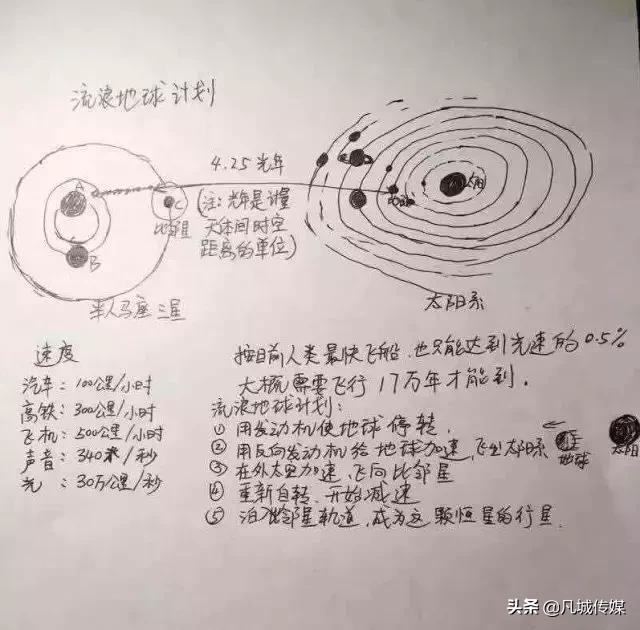 流浪地球计划
4.25光年
(注:光年是计量
天体间时空
距离的单位)
A
B
C
比邻星
半人马座三星
地球
太阳
太阳系
速度
汽车:100公里/小时
高铁:300公里/小时
飞机:500公里/小时
声音:340米/秒
光:30万公里/秒
按目前人类最快飞船,也只能达到光速的0.5%
大概需要飞行17万年才能到.
流浪地球计划:
① 用发动机使地球停转,
② 用反向发动机给地球加速,飞出太阳系
③ 在外太空加速,飞向比邻星
④ 重新自转、开始减速
⑤ 泊入比邻星轨道,成为这颗恒星的行星.
地球
太阳
头条 @凡城传媒